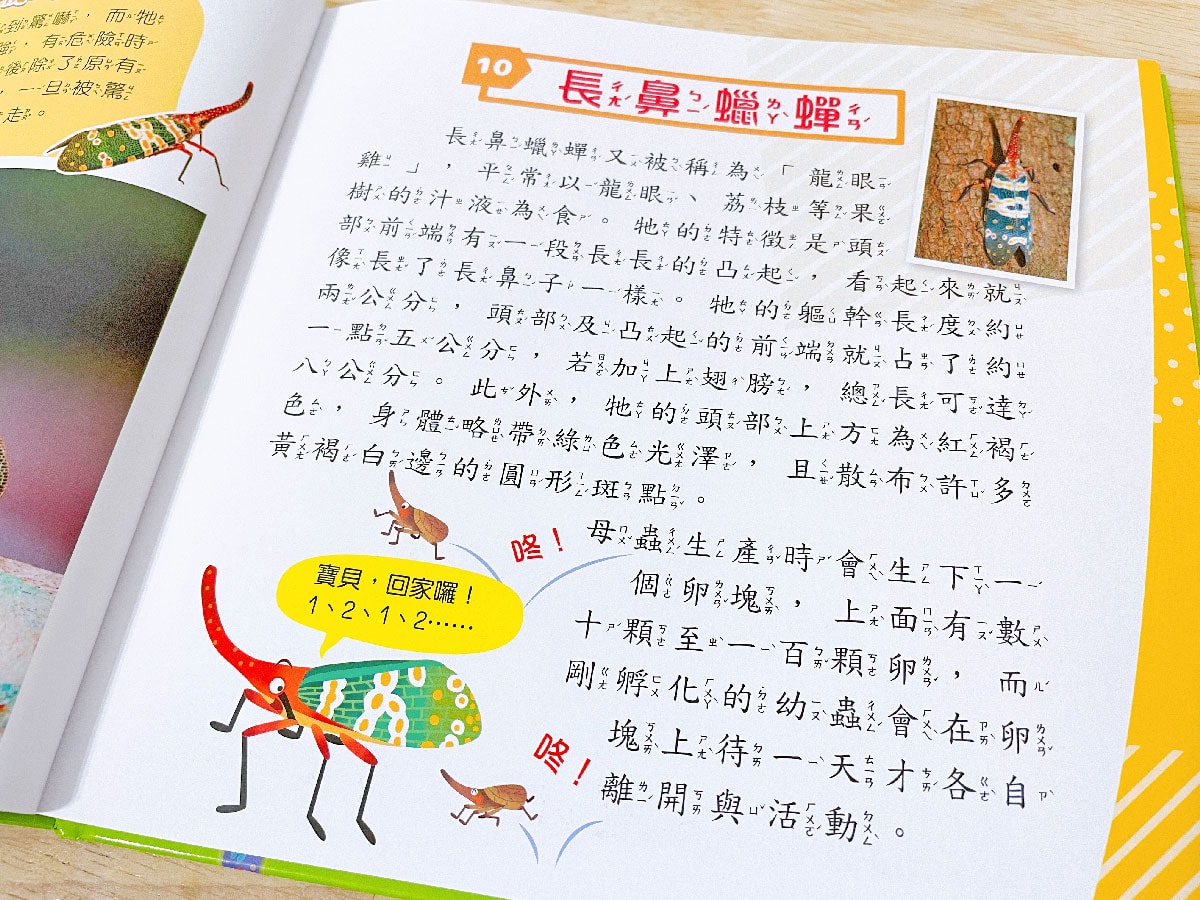 到驚嚇，而牠
有危險時
後除了原有
，一旦被驚
走。
10
長鼻蠟蟬
長鼻蠟蟬又被稱為「龍眼
雞」，平常以龍眼、荔枝等果
樹的汁液為食。牠的特徵是頭
部前端有一段長長的凸起，看起來就
像長了長鼻子一樣。牠的軀幹長度約
兩公分，頭部及凸起的前端就占了約
一點五公分，若加上翅膀，總長可達
八公分。此外，牠的頭部上方為紅褐
色，身體略帶綠色光澤，且散布許多
黃褐白邊的圓形斑點。
咚！
母蟲生產時會生下一
個卵塊，上面有數
十顆至一百顆卵，而
剛孵化的幼蟲會在卵
塊上待一天才各自
離開與活動。
寶貝，回家囉！
1、2、1、2……
咚！